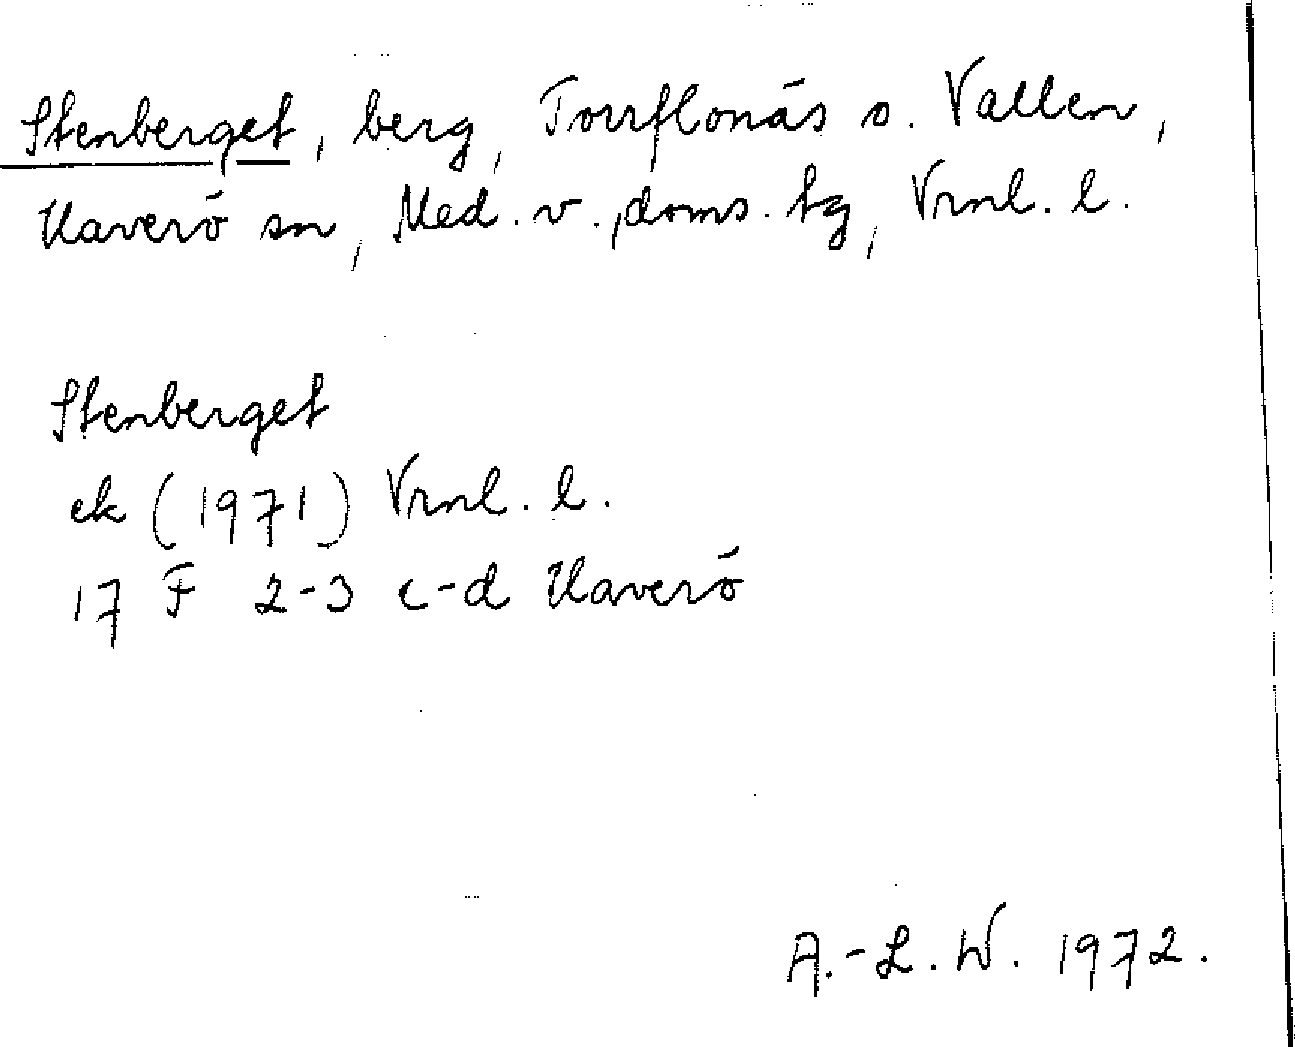 Stenberget, berg, Torrflonäs o. Vallen,
Haverö sn, Med. v. doms. tg, Vrnl. l.
Stenberget
ek (1971) Vrnl. l.
17 F 2-3 c-d Haverö
A.-L. W. 1972.